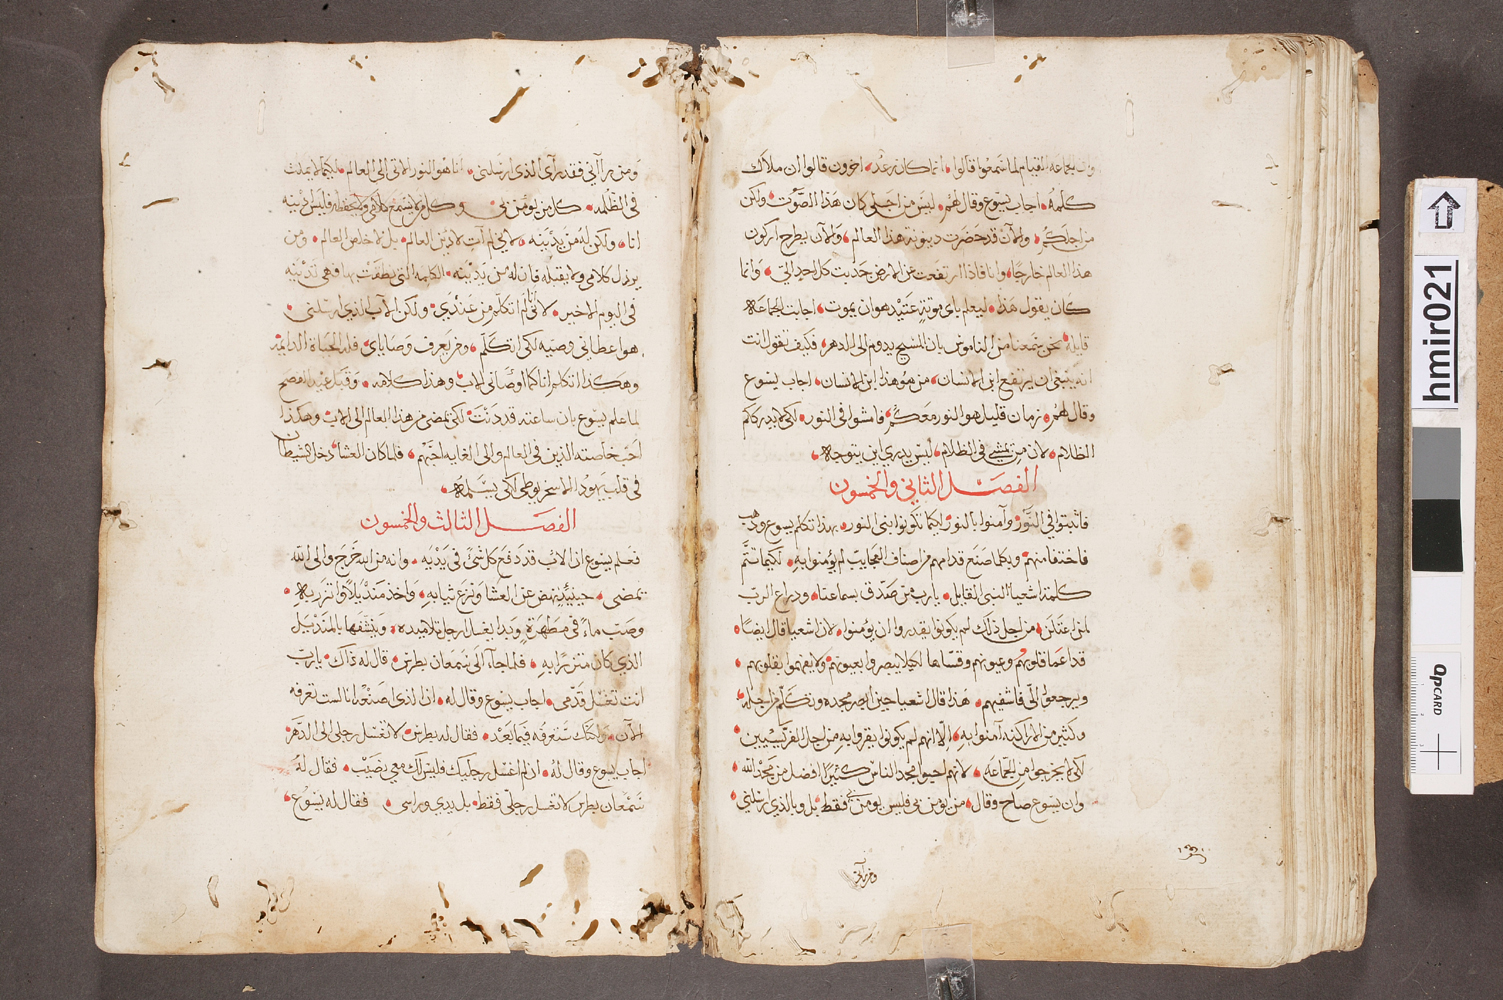 وان الجماعه القيام لما سمعوا قالوا، انما كان رعد، اخرون قالوا ان ملاك
كلمه، اجاب يسوع وقال لهم، ليس من اجلي كان هذا الصوت، ولكن
من اجلكم، والآن قد حضرت دينونة هذا العالم، والآن يطرح اركون
هذا العالم خارجًا، وانا فاذا ارتفعت عن الارض جذبت كل احد الي، وانما
كان يقول هذا، ليعلم باي موتةٍ عتيد هو ان يموت، اجابت الجماعة
قايلة، نحن سمعنا من الناموس بان المسيح يدوم الى الدهر، فكيف تقول انت
انه ينبغي ان يرتفع ابن الانسان، من هو هذا ابن الانسان، اجاب يسوع
وقال لهم، زمان قليل هو النور معكم، فامشوا في النور، لكي لا يدرككم
الظلام، لان من يمشي في الظلام، ليس يدري اين يتوجه،
الفصل الثاني والخمسون
فاثبتوا في النور وآمنوا بالنور، لكيما تكونوا بني النور، بهذا تكلم يسوع وذهب
فاختفا منهم، وبكلما صنع قدامهم من اصناف العجايب لم يؤمنوا به، لكيما تتم
كلمة اشعيا النبي القايل، يا رب من صدق بسماعنا، وذراع الرب
لمن اعتلن، من اجل ذلك لم يكونوا يقدروا ان يؤمنوا، لان اشعيا قال ايضًا،
قد اعما قلوبهم وعيونهم وقساها لكيلا يبصروا بعيونهم، ولا يفهموا بقلوبهم،
ويرجعوا الي فاشفيهم، هذا قال اشعيا حين ابصر مجده وتكلم من اجله،
وكثير من الاراكنه آمنوا به، الا انهم لم يكونوا يقروا به من اجل الفريسيين،
لكي لا يخرجوا من الجماعة، لانهم احبوا مجد الناس كثيرًا افضل من مجد الله،
وان يسوع صاح وقال، من يؤمن بي فليس يؤمن بي فقط، بل وبالذي ارسلني،
ومن رآني
ومن رآني فقد رآى الذي ارسلني، انا هو النور الاتي الى العالم، لكيما لا يمكث
في الظلمه، كل من يؤمن بي، وكل من لا يسمع كلامي ولا يحفظه فليس ادينه
انا، ولكن له من يدينه، لاني لم آت لادين العالم، بل لاخلص العالم، ومن
يرذل كلامي ولا يقبله فان له من يدينه، الكلمه التي نطقت بها فهي تدينه
في اليوم الاخير، لاني انا لم اتكلم من عندي، ولكن الآب الذي ارسلني،
هو اعطاني وصيه لكي اتكلم، ومن يعرف وصاياي، فله الحياة الدايمه
وهكذا اتكلم انا كما اوصاني الاب، وهذا كلامه، وقبل عيد الفصح
لما علم يسوع بان ساعته قد دنت لكي تمضي من هذا العالم الى الاب، وهكذا
احب خاصته الذين في العالم والى الغايه احبهم، فلما كان العشا، دخل الشيطان
في قلب يهودا الاسخريوطي لكي يسلمه،
الفصل الثالث والخمسون
فعلم يسوع اذ الاب قد دفع كل شيء في يديه، وانه من الله خرج والى الله
يمضي، حينئيذٍ نهض عن العشا ونزع ثيابه، واخذ منديلًا واتزر به،
وصب ماءً في مطهرة، وبدا يغسل ارجل تلاميذه، وينشفها بالمنديل
الذي كان متزرًا به، فلما جآ الى شمعان بطرس، قال له ذاك، يا رب
انت تغسل قدمي، اجاب يسوع وقال له، ان الذي اصنعه انا لست تعرفه
الآن، ولكنك ستعرفه فيما بعد، فقال له بطرس، لا تغسل رجلي الى الدهر،
اجاب يسوع وقال له، ان لم اغسل رجليك فليس لك معي نصيب، فقال له
شمعان بطرس لا تغسل رجلي فقط، بل يدي وراسي، فقال له يسوع،
hmir021
dpCARD